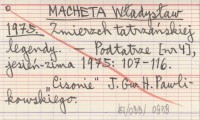 MACHETA Władysław
1975. Zmierzch tatrzańskiej
legendy. — Podtatrze [nr 4],
jesień-zima 1975: 107-116.
"Cisonie" J. Gw. H. Pawli-
kowskiego.